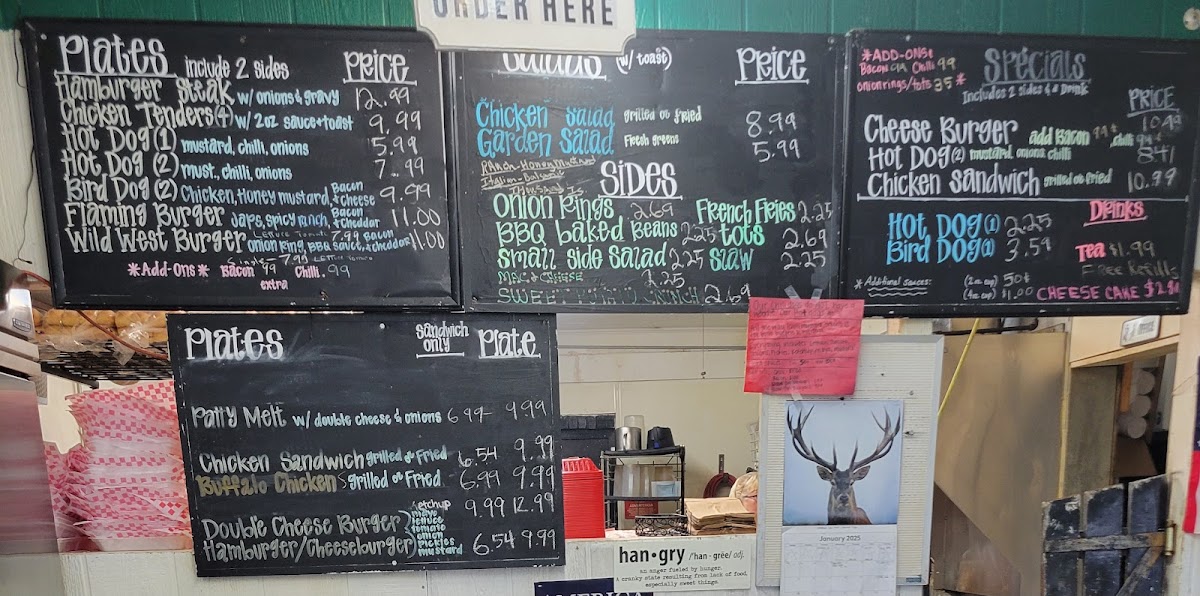 ORDER HERE
Plates include 2 sides Price
Hamburger Steak w/ onions & gravy 12.99
Chicken Tenders (4) w/ 2oz sauce + toast 9.99
Hot Dog (1) mustard, chili, onions 5.99
Hot Dog (2) must., chili, onions 7.99
Bird Dog (2) Chicken, Honey mustard, Bacon + cheese 9.99
Flaming Burger Japs, spicy ranch, Bacon + Cheddar 11.00
Wild West Burger onion ring, BBQ sauce, + Cheddar 11.00
*Add-Ons* Bacon 99 Chili .99
extra
Salads (w/ toast) Price
Chicken Salad grilled or fried 8.99
Garden Salad Fresh greens 5.99
Sides
Onion Rings 2.69 French Fries 2.25
BBQ Baked Beans 2.25 Tots 2.69
Small Side Salad 2.25 Slaw 2.25
Mac & Cheese 2.25
2.69
*ADD-ONS*
Bacon Chili 99
onion rings/tots 35*
Specials
Includes 2 sides & a Drink
Price
Cheese Burger add Bacon 99¢ chili
Hot Dog (2) mustard, onions, chili 8.41
Chicken Sandwich grilled or fried 10.99
Drinks
Hot Dog (1) 2.25
Bird Dog (1) 3.59
Tea $1.99
Free Refills
*Additional sauces: (2oz. cup) 50¢
(4oz. cup) $1.00
CHEESE CAKE
Plates Sandwich only Plate
Patty Melt w/ double cheese & onions 6.99 9.99
Chicken Sandwich grilled or Fried 6.54 9.99
Buffalo Chicken S grilled or Fried 6.99 9.99
Double Cheese Burger 9.99 12.99
Hamburger/Cheeseburger 6.54 9.99
Ketchup
mayo
lettuce
tomato
onion
pickles
mustard
January 2025
han•gry /'han - grēe/ adj.
an anger fueled by hunger.
A cranky state resulting from lack of food,
especially sweet things.
AMERICA